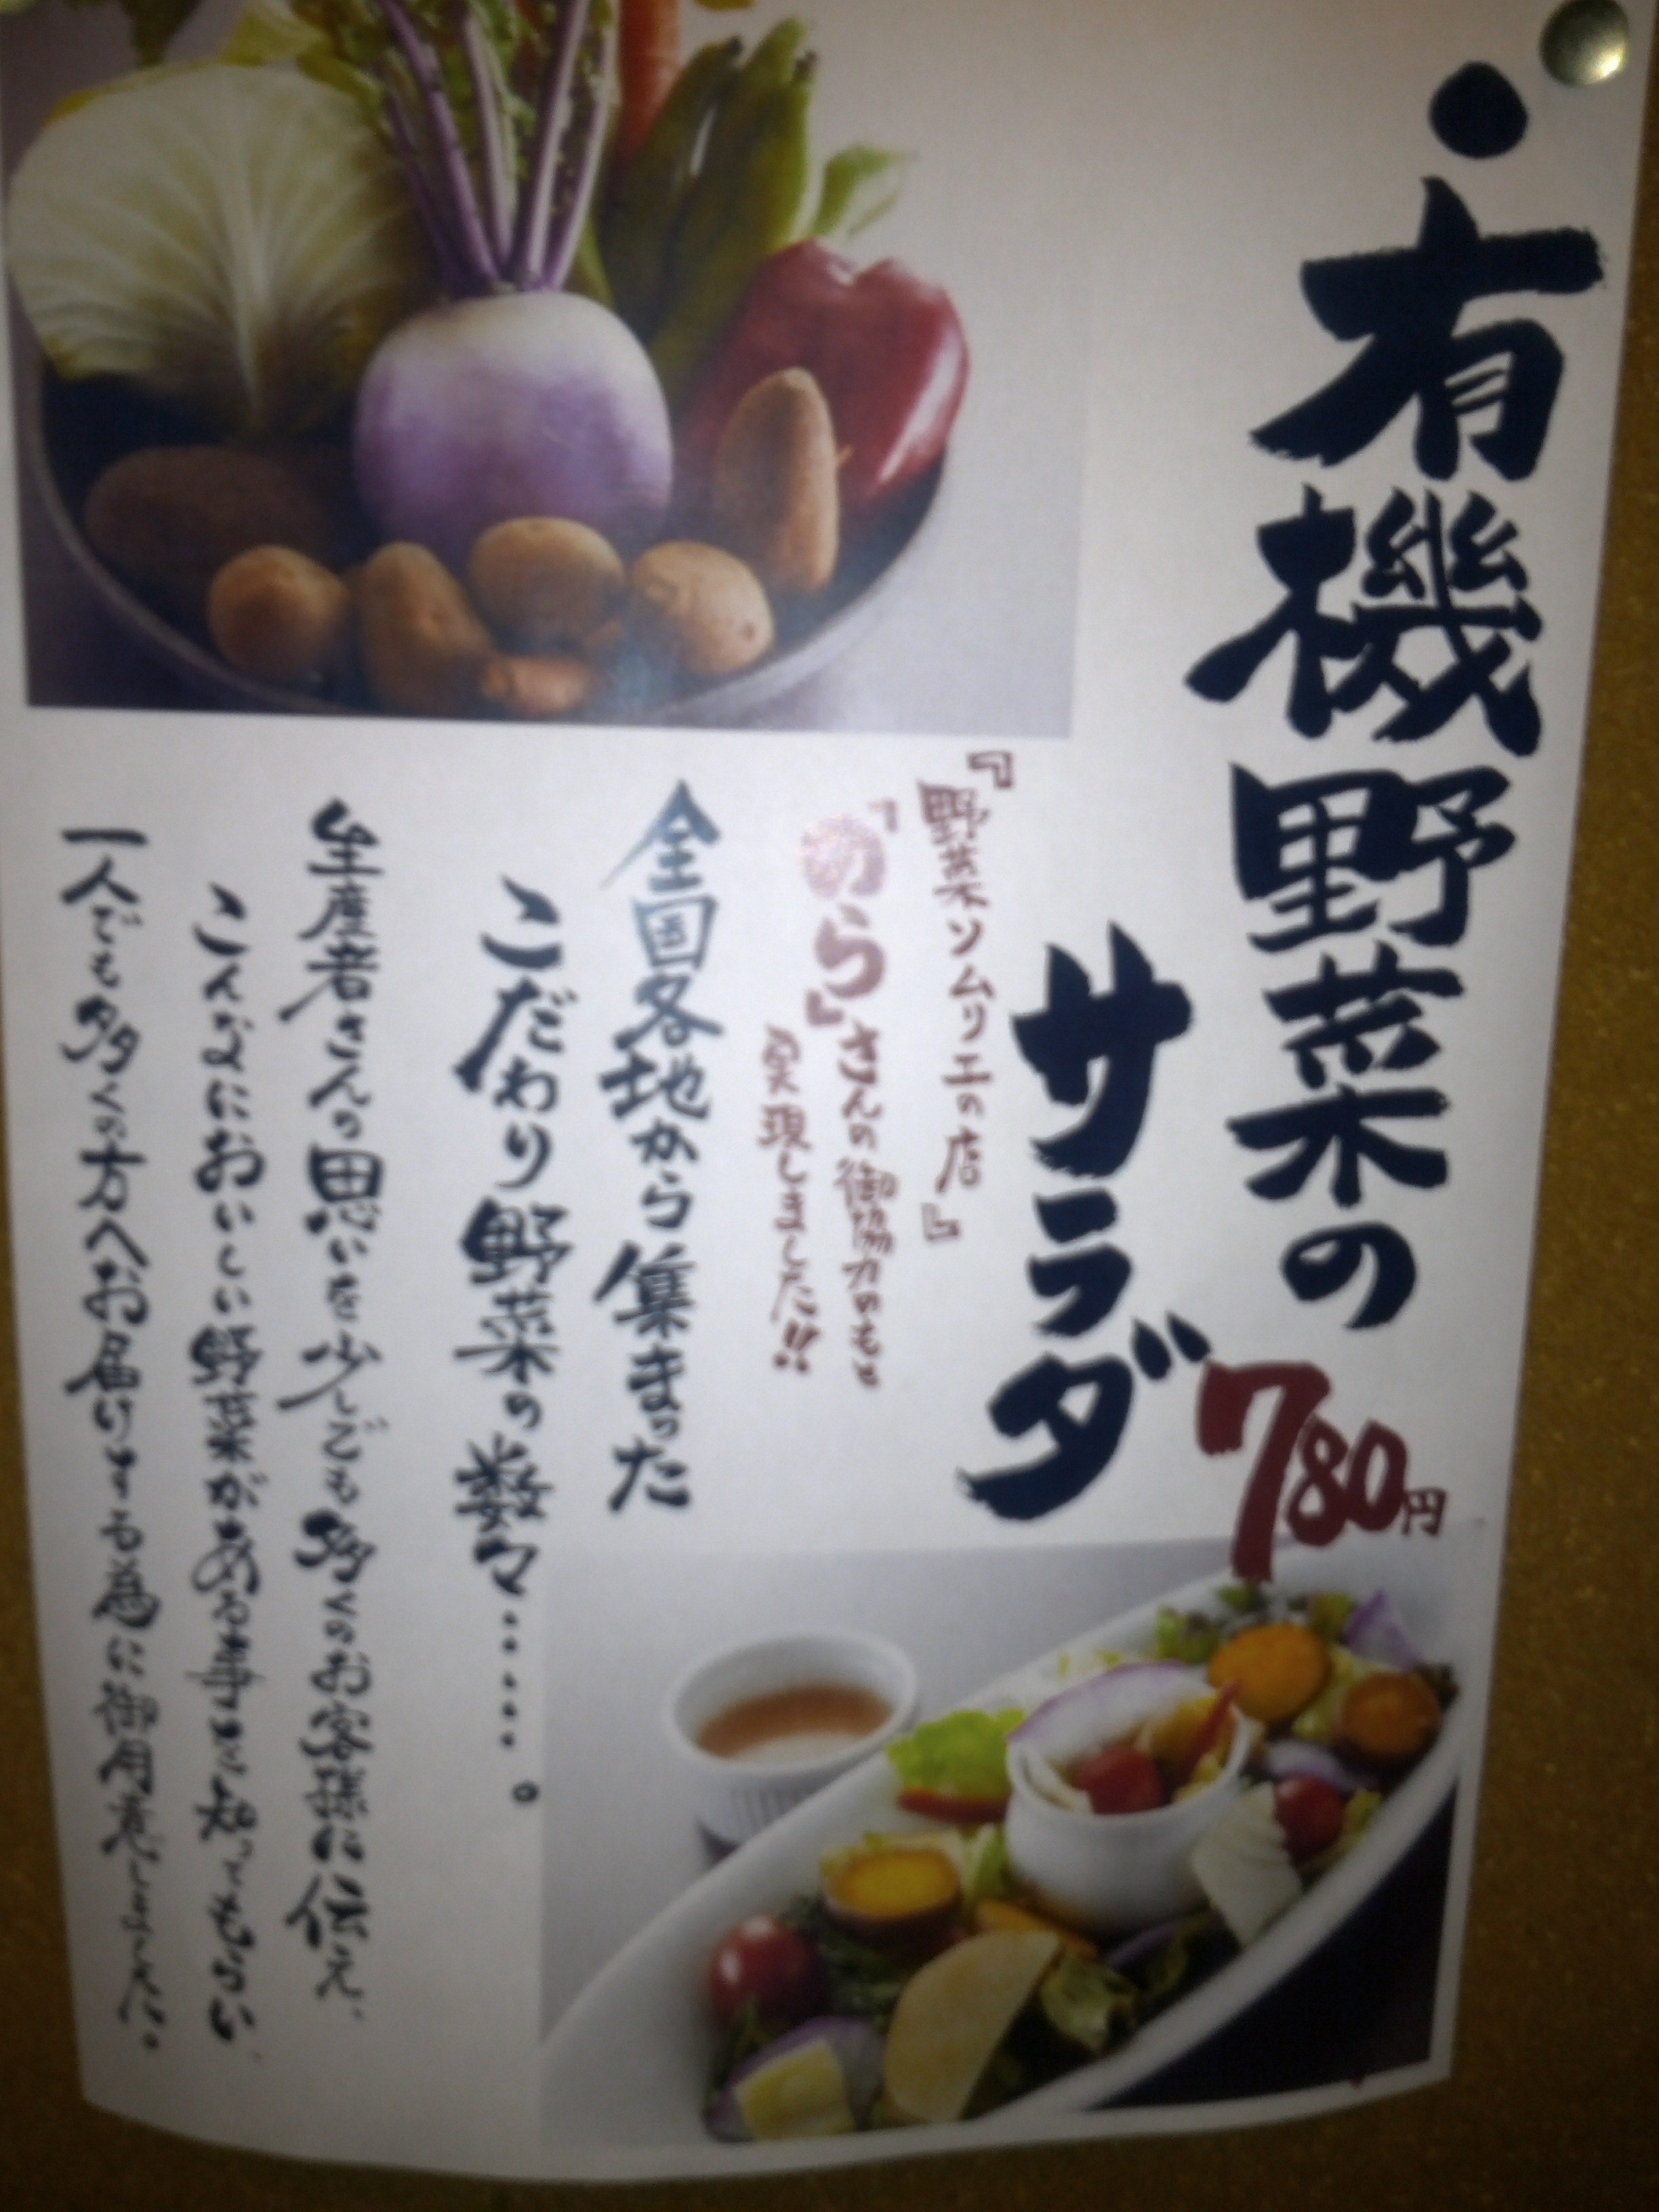 ・有機野菜の
サラダ
780円
『野菜ソムリエの店』
「のら」さんの御協力のもと
実現しました!!
全国各地から集まった
こだわり野菜の数々……。
生産者さんの思いを少しでも多くのお客様に伝え、
こんなにおいしい野菜がある事を知ってもらい、
一人でも多くの方へお届けする為に御用意しました。